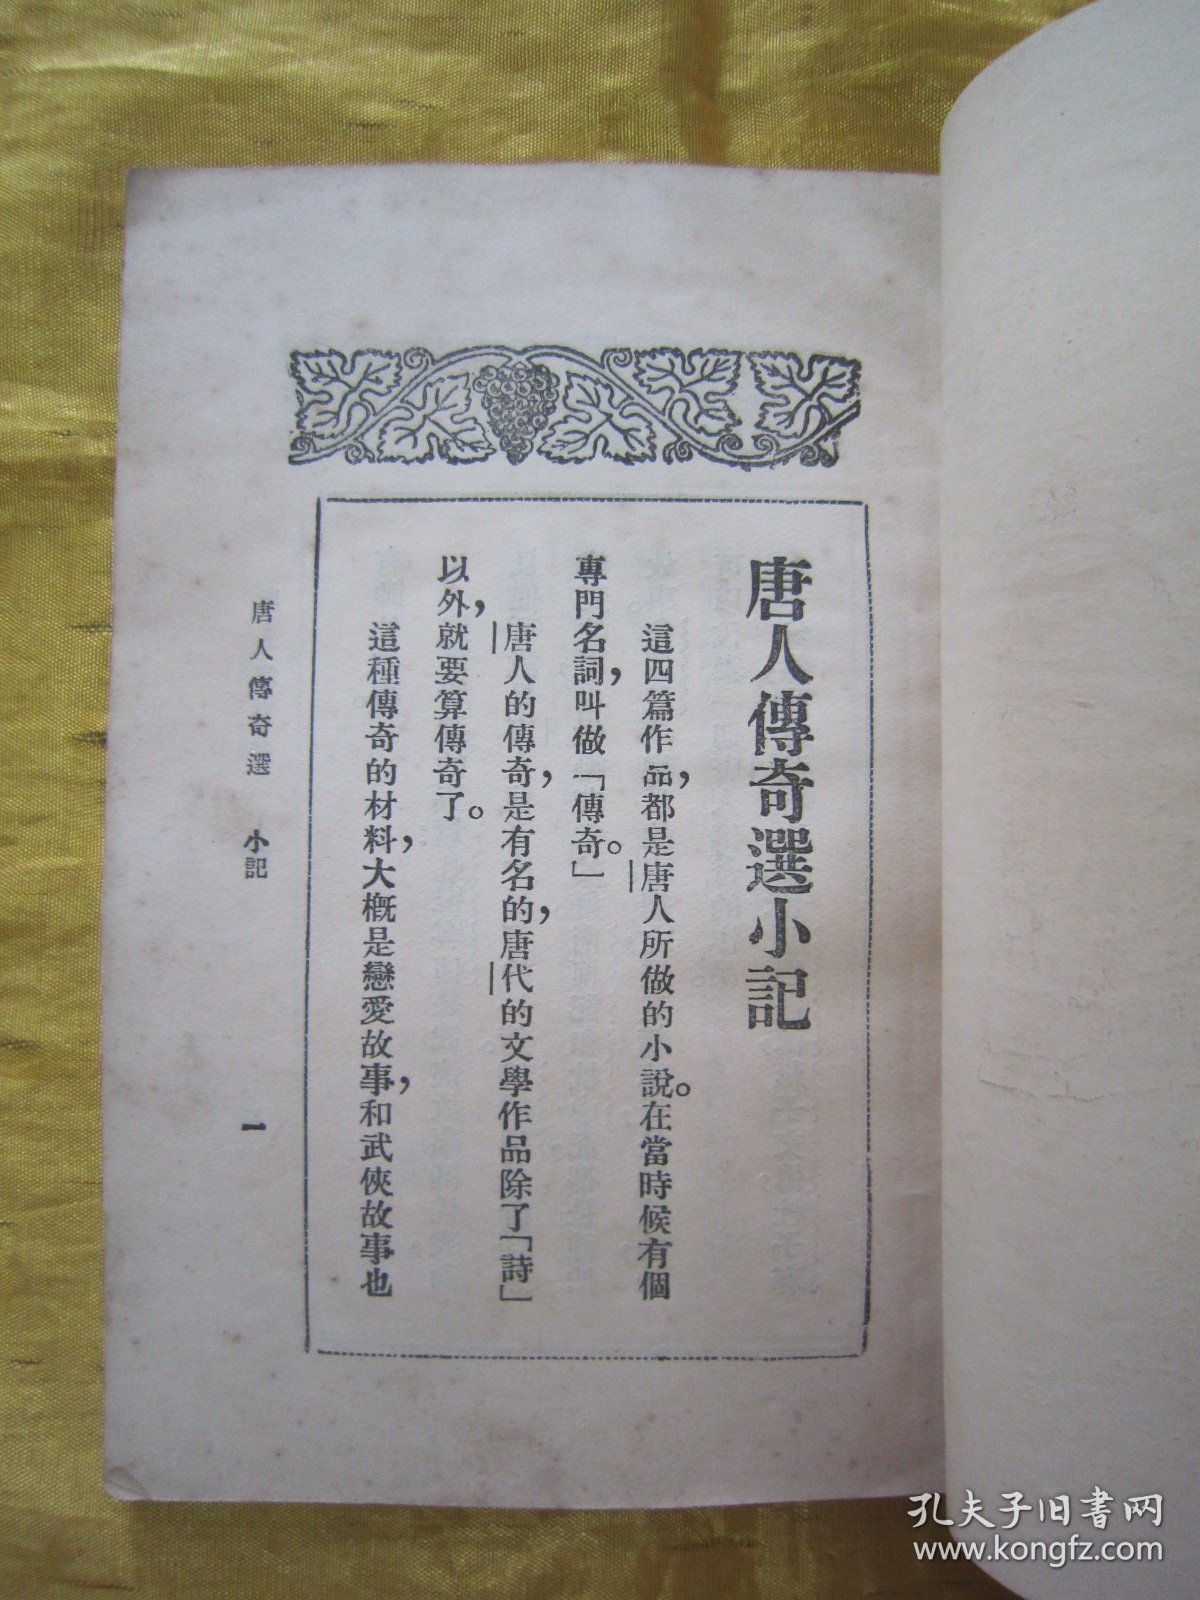 唐人傳奇選小記
這四篇作品，都是唐人所做的小說。在當時候有個
專門名詞，叫做「傳奇。」
唐人的傳奇，是有名的，唐代的文學作品除了「詩」
以外，就要算傳奇了。
這種傳奇的材料，大概是戀愛故事，和武俠故事也
唐人傳奇選 小記
一
孔夫子旧书网
www.kongfz.com